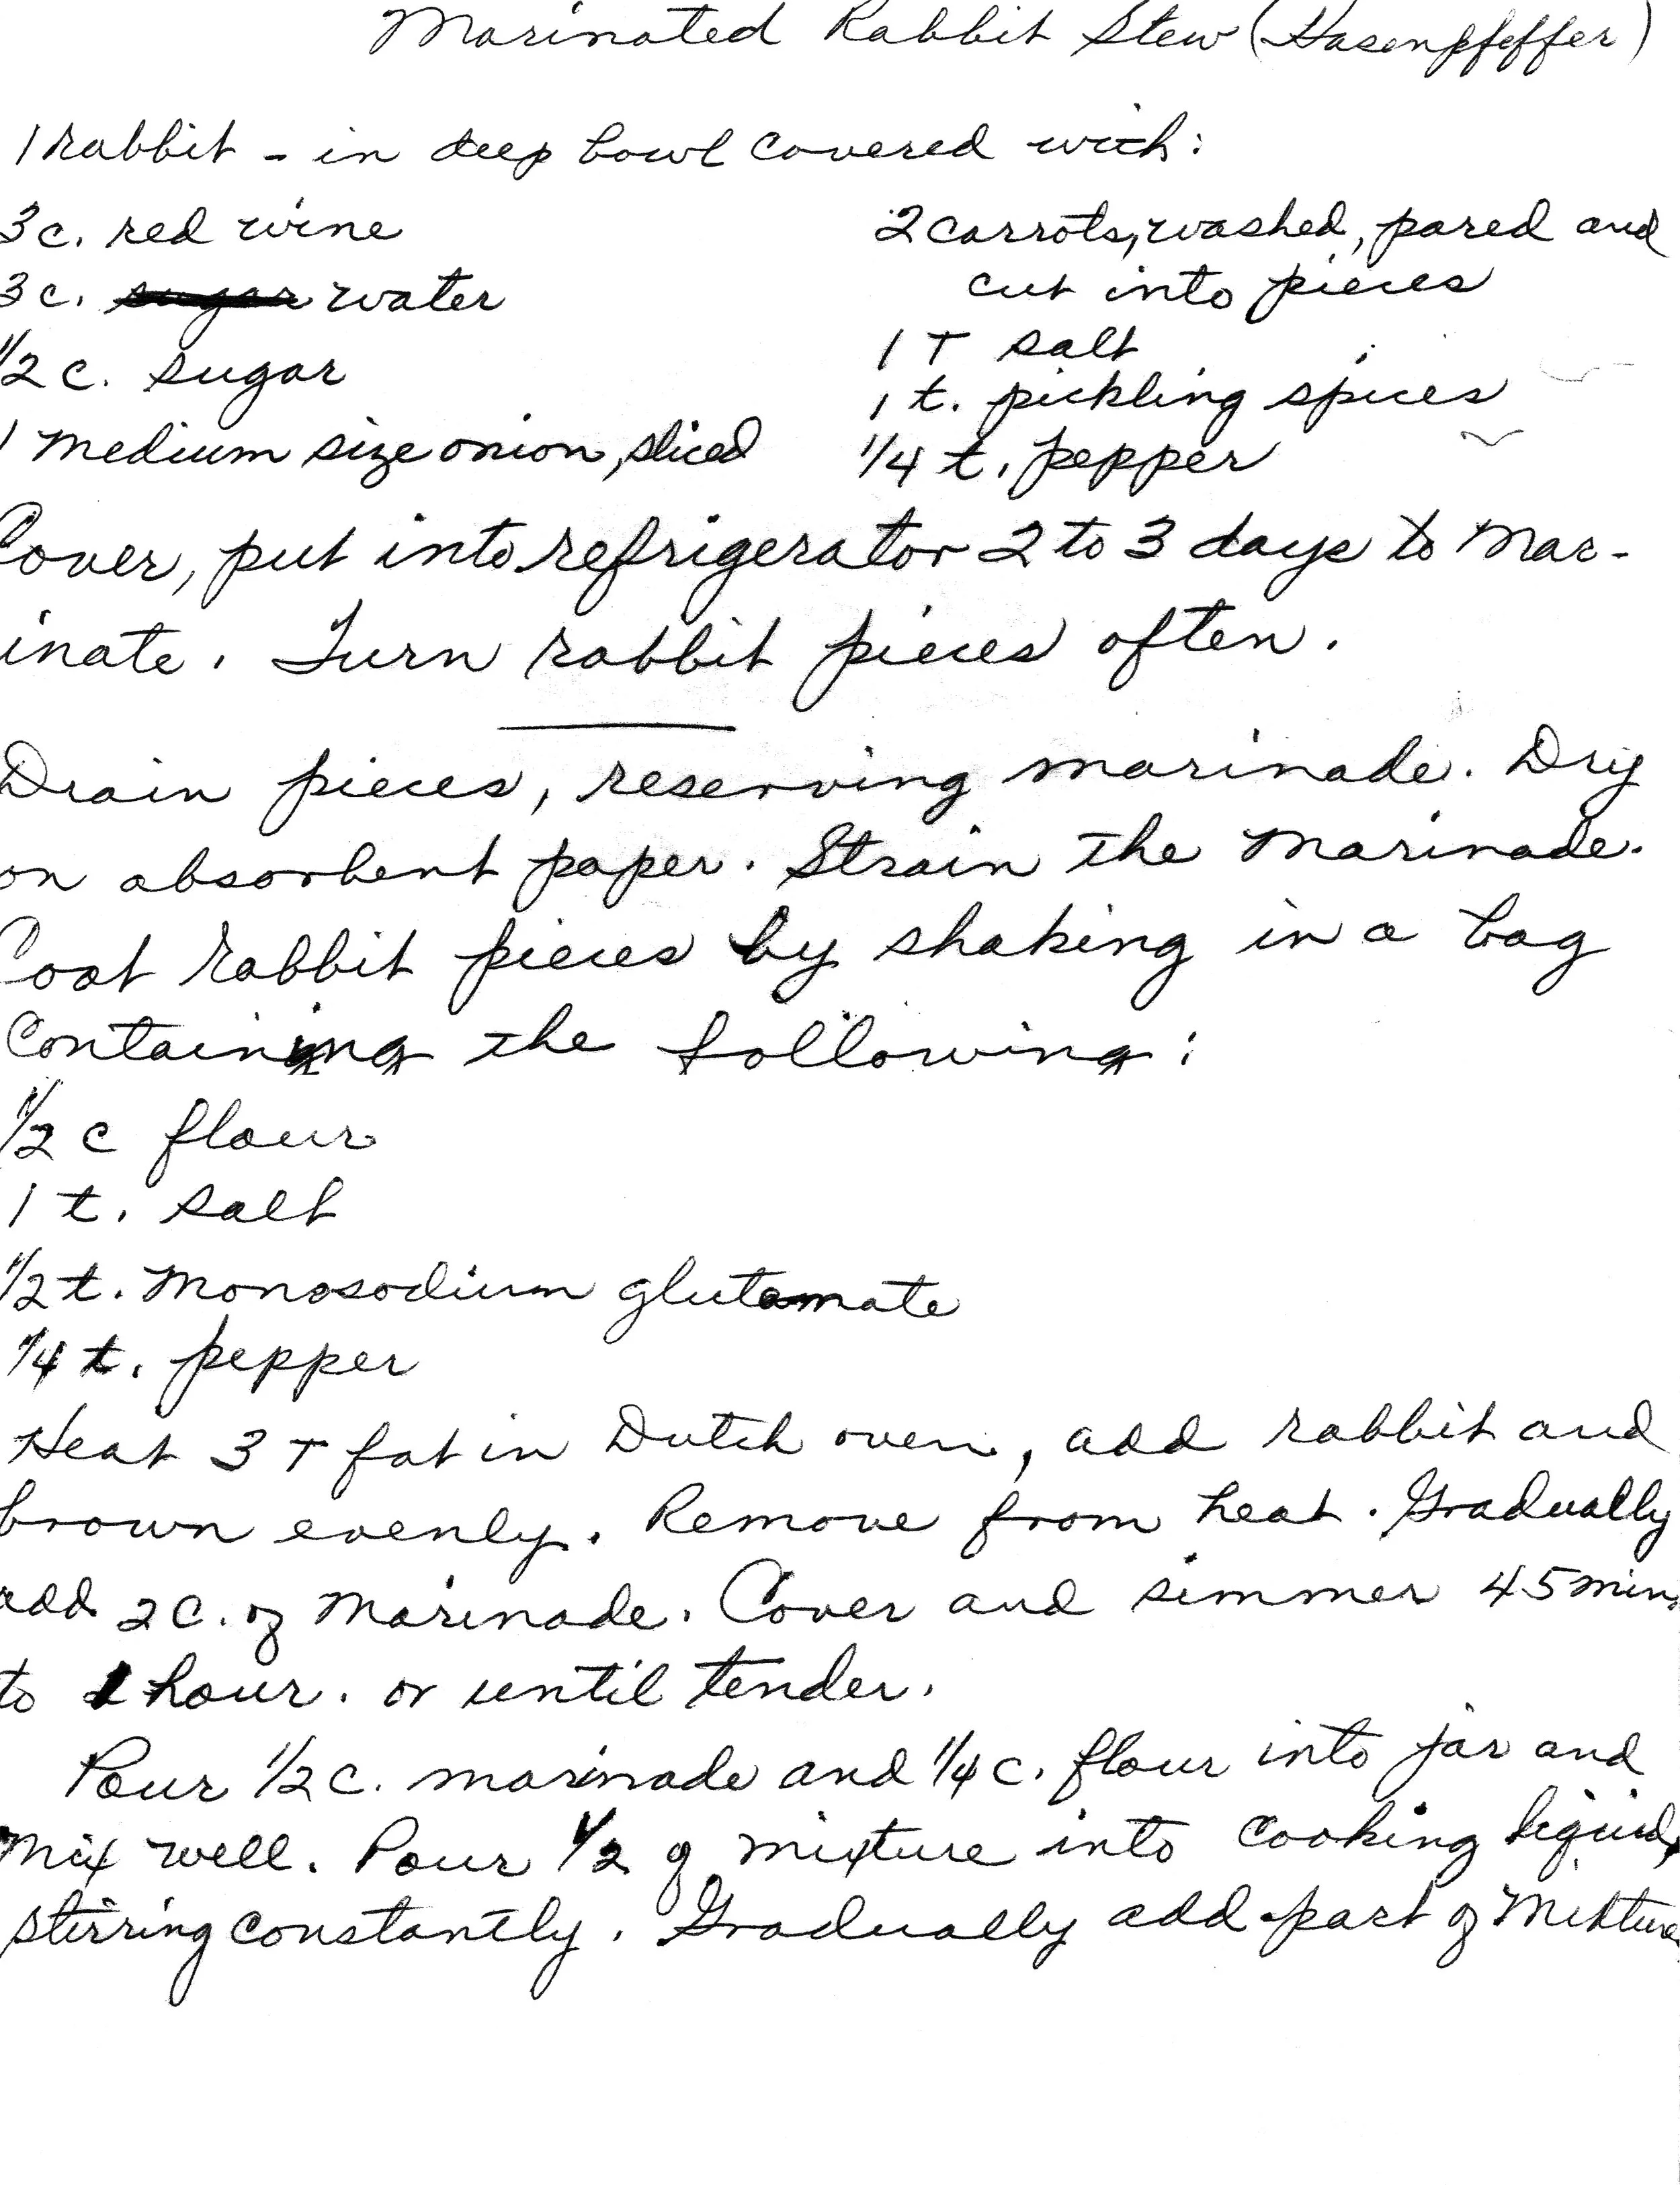 Marinated Rabbit Stew (Hasenpfeffer)
1 rabbit - in deep bowl covered with:
3 c. red wine
3 c. sugar water
1/2 c. sugar
1 medium size onion, sliced
2 carrots, washed, pared and
cut into pieces
1 T salt
1 t. pickling spices
1/4 t. pepper
Cover, put into refrigerator 2 to 3 days to mar-
inate. Turn rabbit pieces often.
Drain pieces, reserving marinade. Dry
on absorbent paper. Strain the marinade.
Coat rabbit pieces by shaking in a bag
containing the following:
1/2 c flour
1 t. salt
1/2 t. monosodium glutamate
1/4 t. pepper
Heat 3 T fat in Dutch oven, add rabbit and
brown evenly. Remove from heat. Gradually
add 2 c. of marinade. Cover and simmer 45 min.
to 1 hour. or until tender.
Pour 1/2 c. marinade and 1/4 c. flour into jar and
mix well. Pour 1/2 of mixture into cooking liquid,
stirring constantly. Gradually add part of mixture